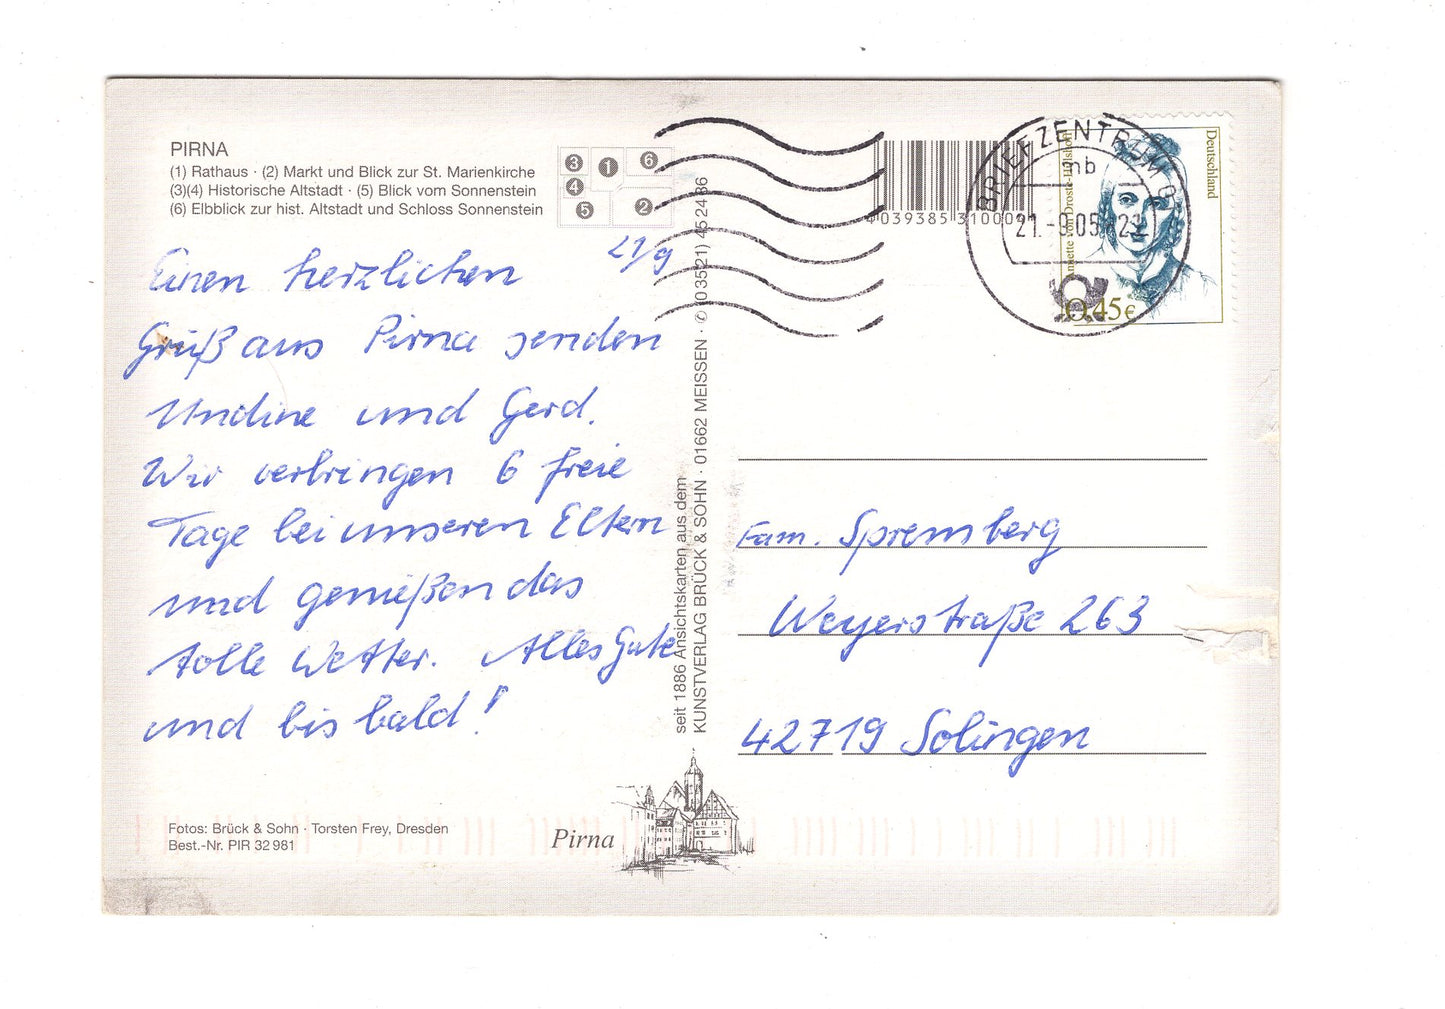 PIRNA
(1) Rathaus · (2) Markt und Blick zur St. Marienkirche
(3)(4) Historische Altstadt · (5) Blick vom Sonnenstein
(6) Elbblick zur hist. Altstadt und Schloss Sonnenstein
3 1 6
4
5 2
21/9
Einen herzlichen
Gruß aus Pirna senden
Undine und Gerd.
Wir verbringen 6 freie
Tage bei unseren Eltern
und genießen das
tolle Wetter. Alles Gute
und bis bald!
Fotos: Brück & Sohn · Torsten Frey, Dresden
Best.-Nr. PIR 32 981
Pirna
seit 1886 Ansichtskarten aus dem
KUNSTVERLAG BRÜCK & SOHN · 01662 MEISSEN · ✆ (03521) 452486
4 039385 31000
BRIEFZENTRUM 0
mb
21.-9.05
Deutschland
Annette von Droste-Hülshoff
0,45€
Fam. Spremberg
Weyerstraße 263
42719 Solingen